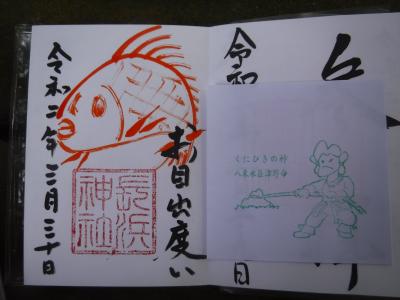 お目出度い
長浜
神社
令和二年三月三十日
令和
日
くにひきの神
八束水臣津野命